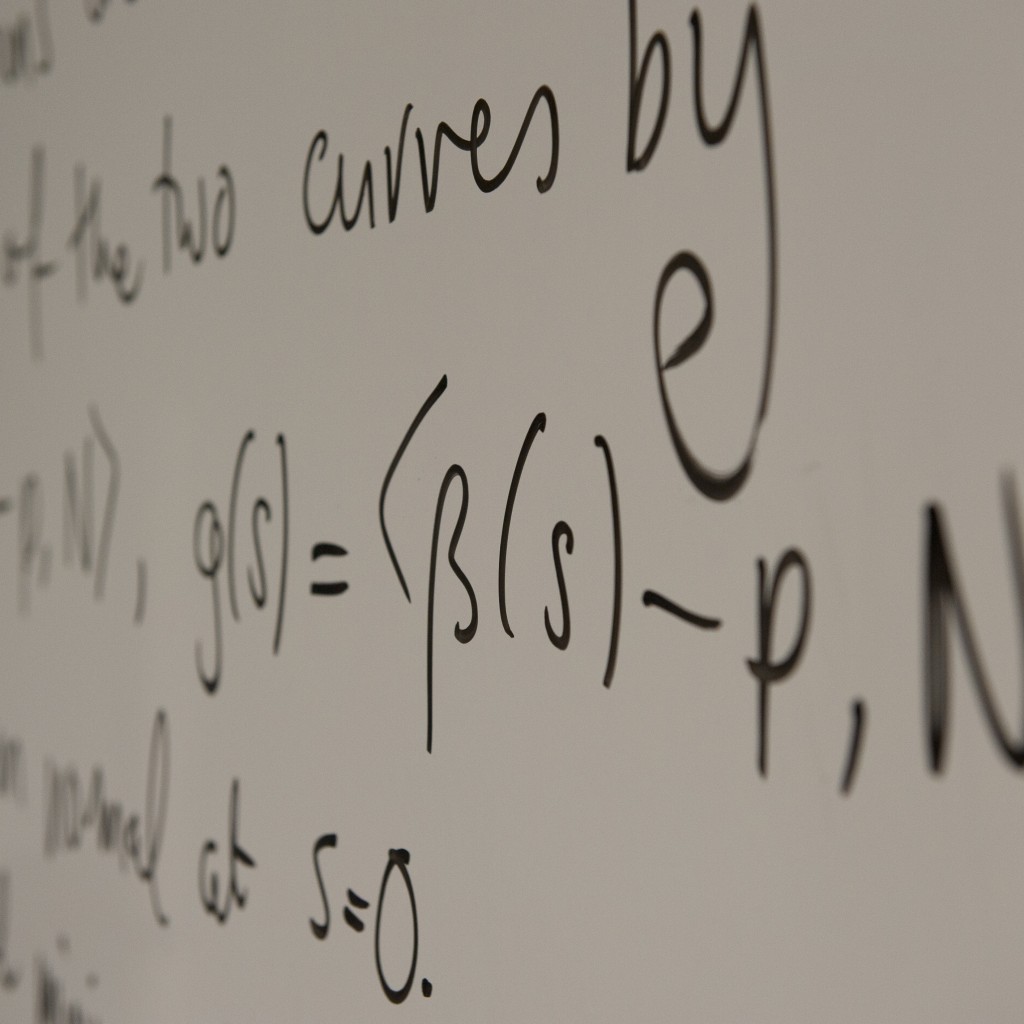 of the two curves by
e
-p, N⟩, g(s) = ⟨β(s) - p, N
normal at s=0.